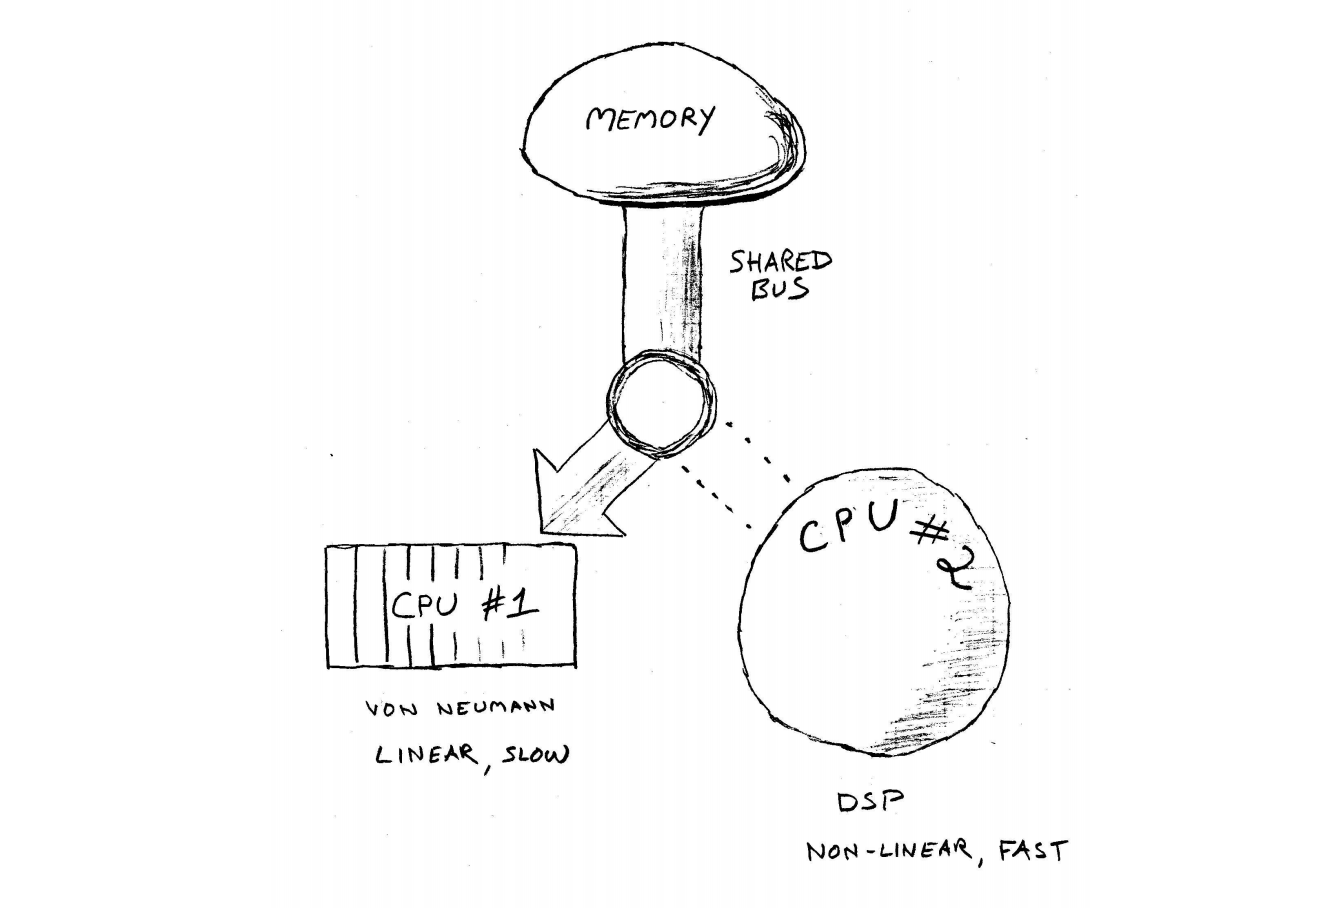 MEMORY
SHARED
BUS
CPU #2
CPU #1
VON NEUMANN
LINEAR, SLOW
DSP
NON-LINEAR, FAST